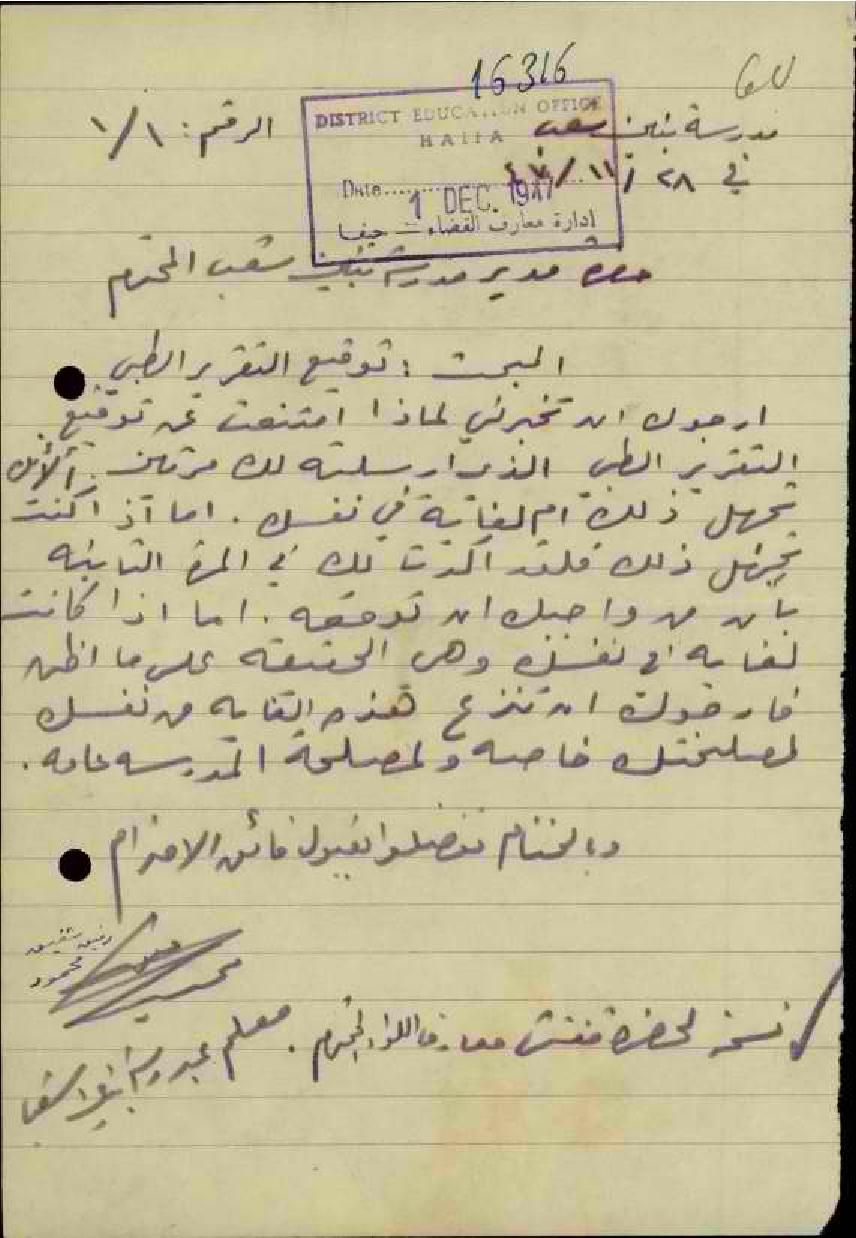 16316
60
مدرسة بنين شعب
الرقم: ١/١
في ٢٨ / ١١ / ٤٧
DISTRICT EDUCATION OFFICE
HAIFA
Date 1 DEC. 1947
ادارة معارف القضاء – حيفا
حضرة مدير مدرسة بنين شعب المحترم
المبحث : توقيع التقرير الطبي
ارجوك ان تخبرني لماذا امتنعت عن توقيع
التقرير الطبي الذي ارسلته لك مرتين. ألأنك
تجهل ذلك ام لغاية في نفسك. اما اذا كنت
تجهل ذلك فلقد اكدت لك في المرة الثانيه
بأن من واجبك ان توقعه. اما اذا كانت
لغايه في نفسك وهي الحقيقه على ما اظن
فارجوك ان تنزع هذه الغايه من نفسك
لمصلحتك خاصه ولمصلحة المدرسه عامه.
وبالختام تفضلوا بقبول فائق الاحترام
رفيق شفيق
محمود
نسخه لحضرة مفتش معارف اللواء المحترم.
معلم بمدرسة بنين شعب